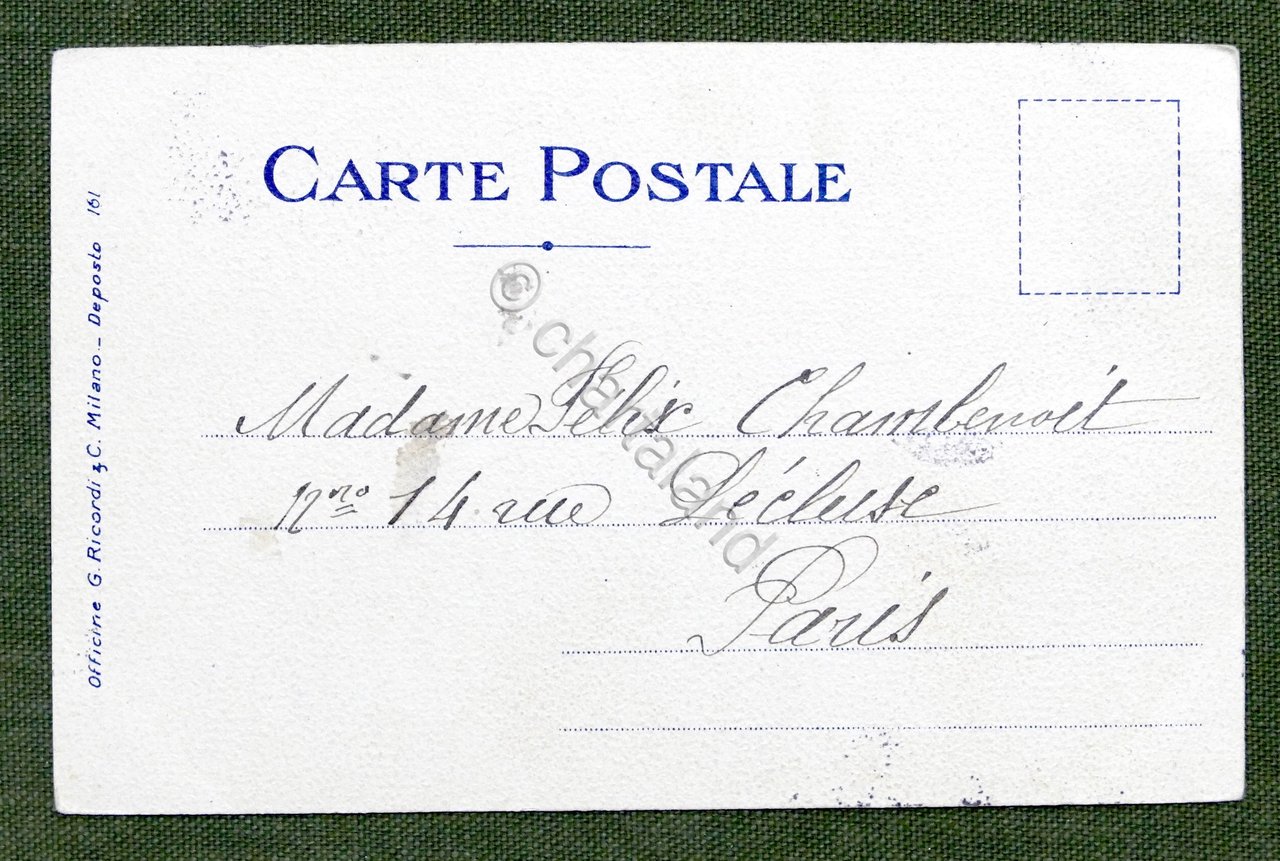 CARTE POSTALE
Officine G. Ricordi & C. Milano - Deposto 161
© chartaland
Madame Félix Chambenoit
Nro 14 rue Lécluse
Paris